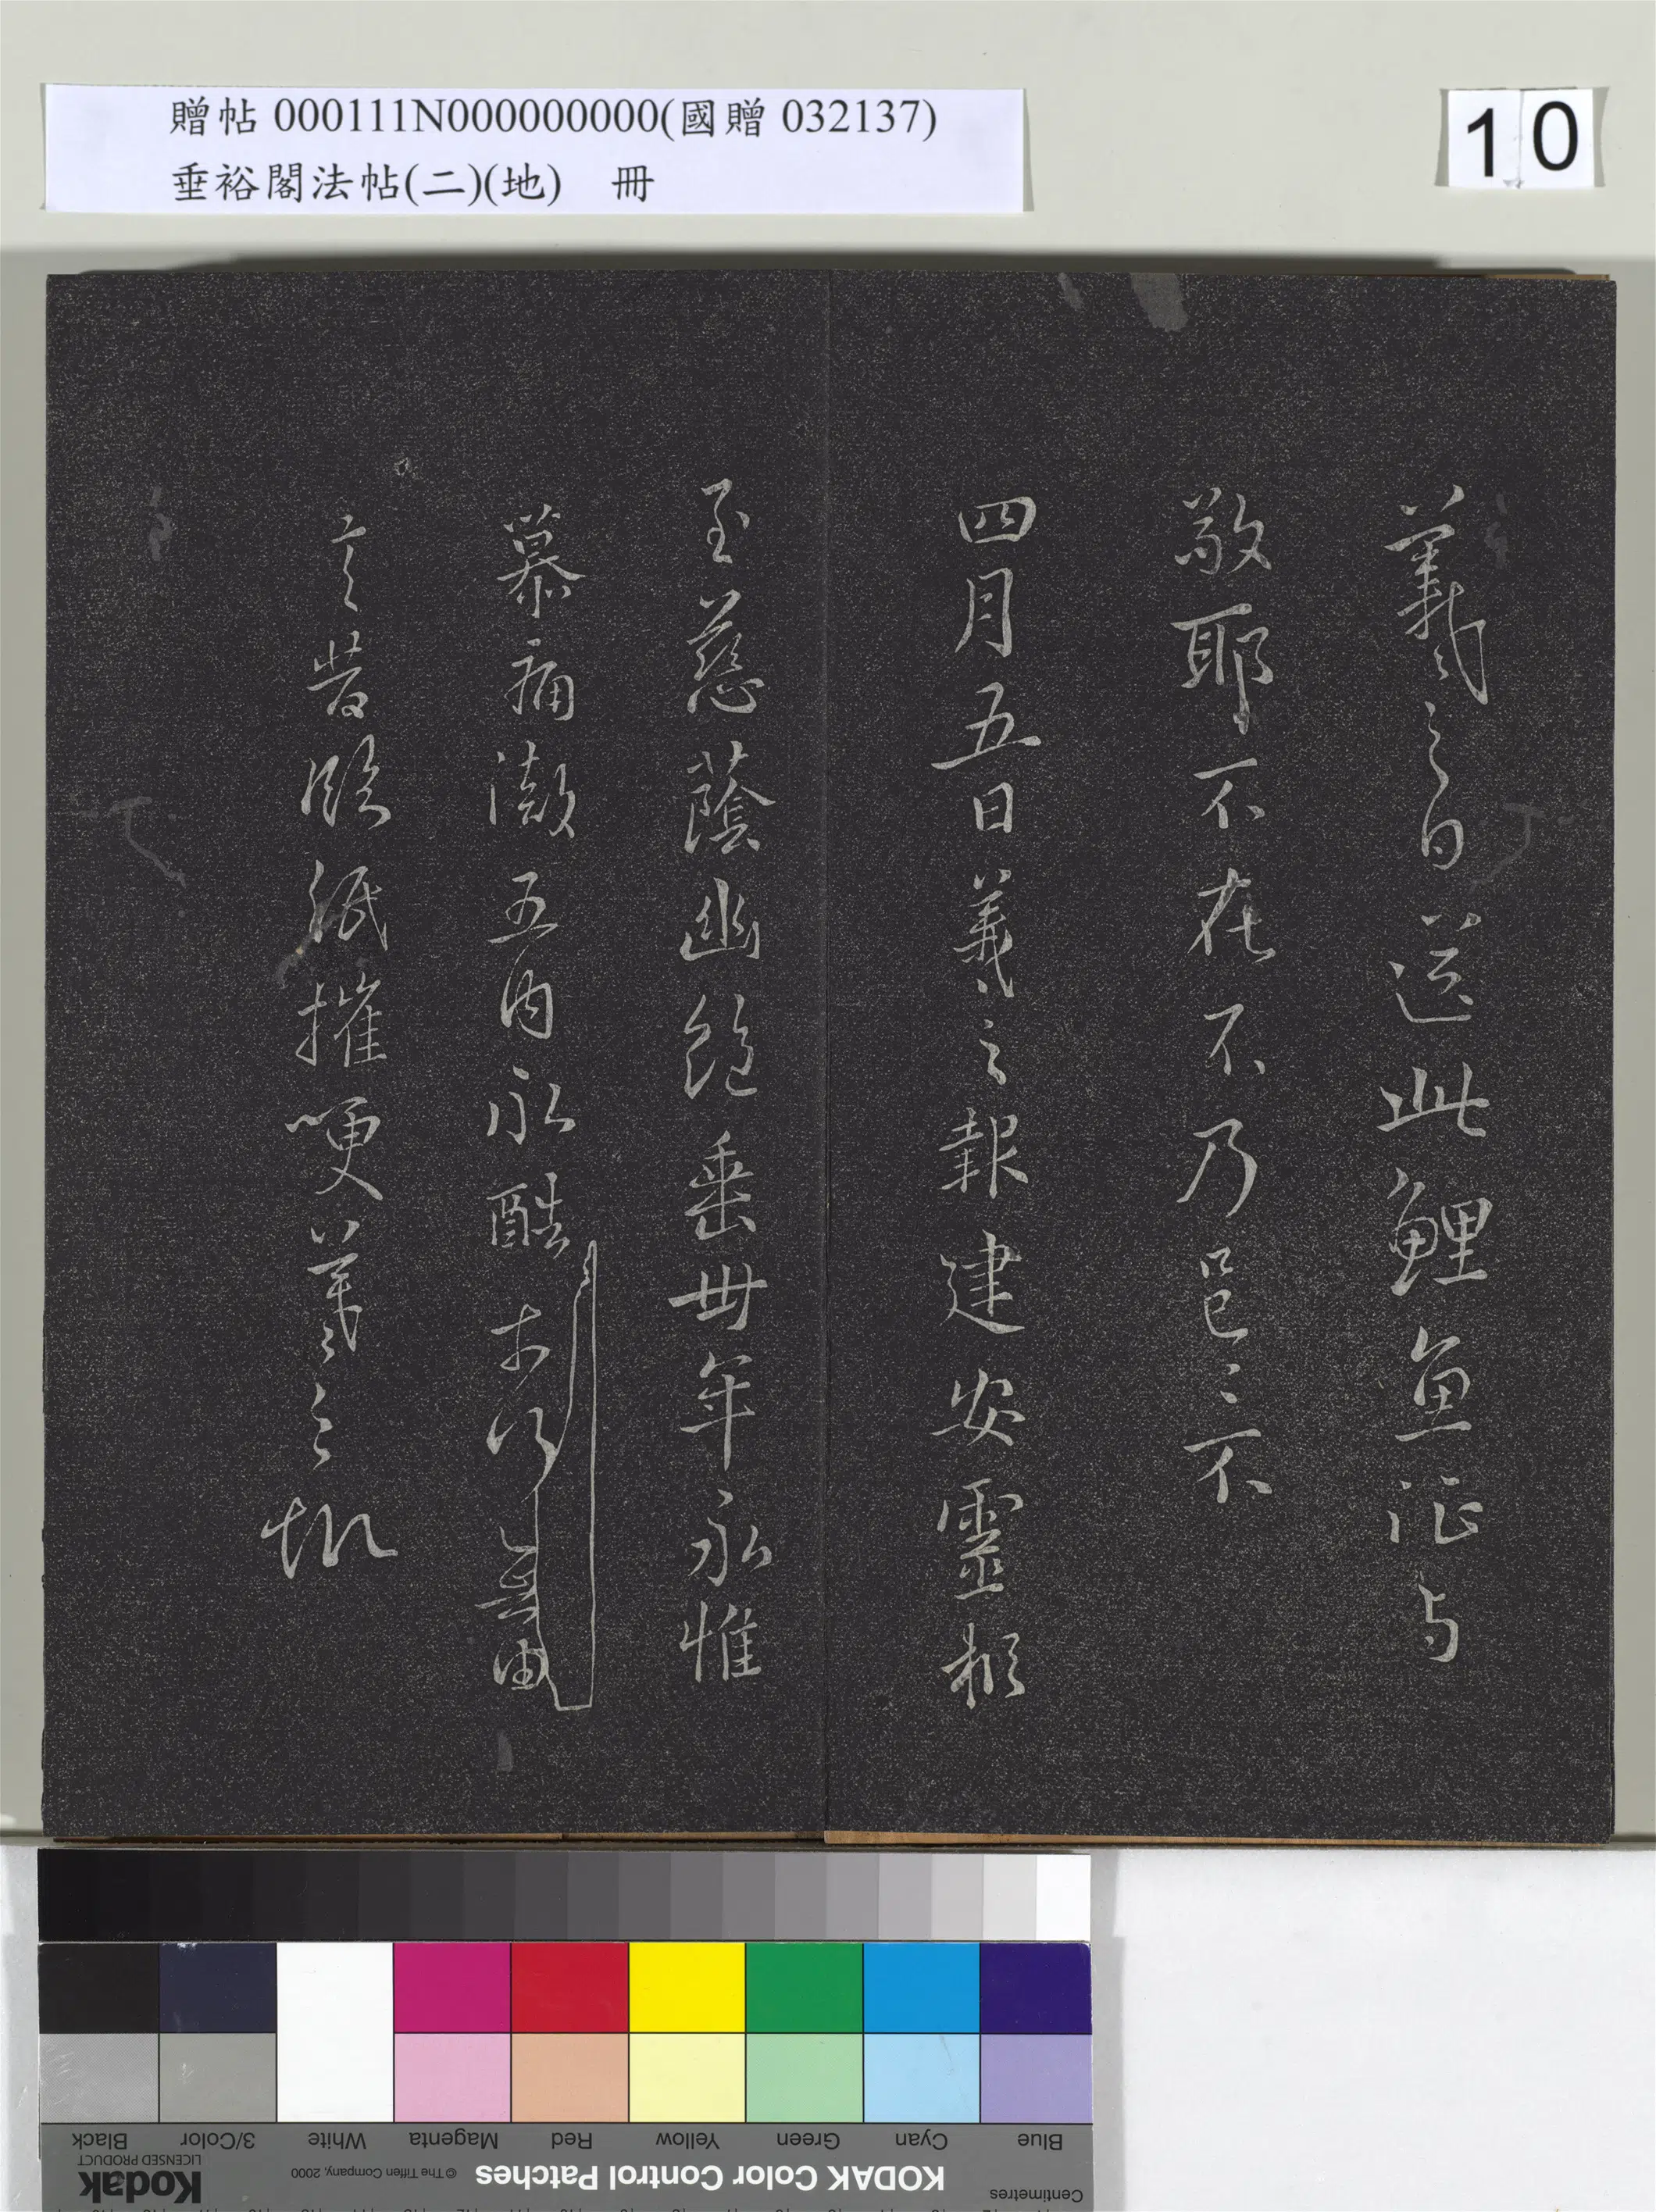 贈帖 000111N000000000(國贈 032137)
垂裕閣法帖(二)(地) 冊
10
羲之白送此鯉魚征与
敬耶不在不乃邑邑不
四月五日羲之報建安靈柩
至慈蔭幽絕垂卅年永惟
崇慕痛徹五內永酷奈何無由
言告臨紙摧哽羲之
KODAK Color Control Patches
Kodak
LICENSED PRODUCT
© The Tiffen Company, 2000
Centimetres
Blue
Cyan
Green
Yellow
Red
Magenta
White
3/Color
Black